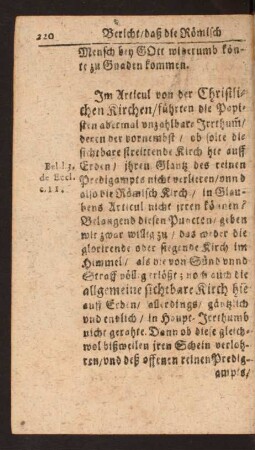 220 Bericht/ daß die Römisch
Mensch bey GOtt widerumb kön-
te zu Gnaden kommen.
Im Articul von der Christli-
chen Kirchen/ führten die Papi-
sten abermal unzahlbare Irrthum/
deren der vornembst/ ob solte die
sichtbare streittende Kirch hie auff
Bel. l. 3. Erden/ ihren Glantz des reinen
de Eccl. Predigampts nicht verlieren/ unnd
c. 11. also die Römisch Kirch/ in Glau-
bens Articul nicht irren können?
Belangend diesen Puncten/ geben
wir zwar willig zu/ das weder die
glorirende oder siegende Kirch im
Himmel/ als die von Sünd unnd
Straff völlig erlößt; noch auch die
allgemeine sichtbare Kirch hie
auff Erden/ allerdings/ gäntzlich
und endlich/ in Haupt-Irrthumb
nicht gerahte. Dann ob diese gleich-
wol bißweilen jren Schein verloh-
ren/ und deß offenen reinen Predig-
ampts/